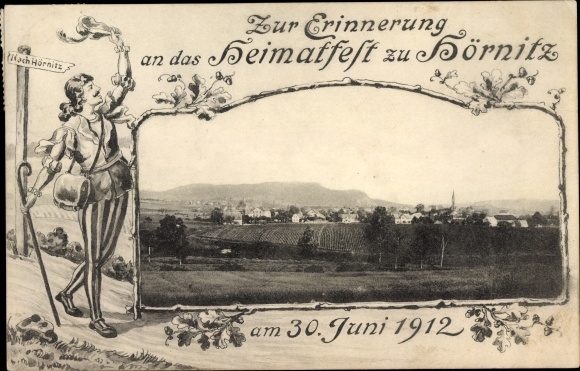 Zur Erinnerung
an das Heimatfest zu Hörnitz
Nach Hörnitz
am 30. Juni 1912